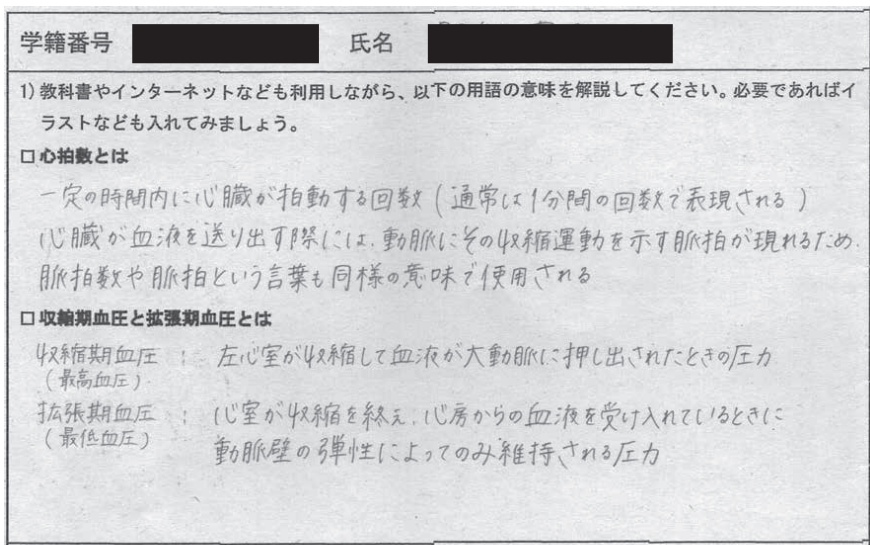 学籍番号 氏名
1) 教科書やインターネットなども利用しながら、以下の用語の意味を解説してください。必要であればイ
ラストなども入れてみましょう。
□ 心拍数とは
一定の時間内に心臓が拍動する回数 (通常は1分間の回数で表現される)
心臓が血液を送り出す際には、動脈にその収縮運動を示す脈拍が現れるため、
脈拍数や脈拍という言葉も同様の意味で使用される
□ 収縮期血圧と拡張期血圧とは
収縮期血圧 : 左心室が収縮して血液が大動脈に押し出されたときの圧力
(最高血圧)
拡張期血圧 : 心室が収縮を終え、心房からの血液を受け入れているときに
(最低血圧)
動脈壁の弾性によってのみ維持される圧力